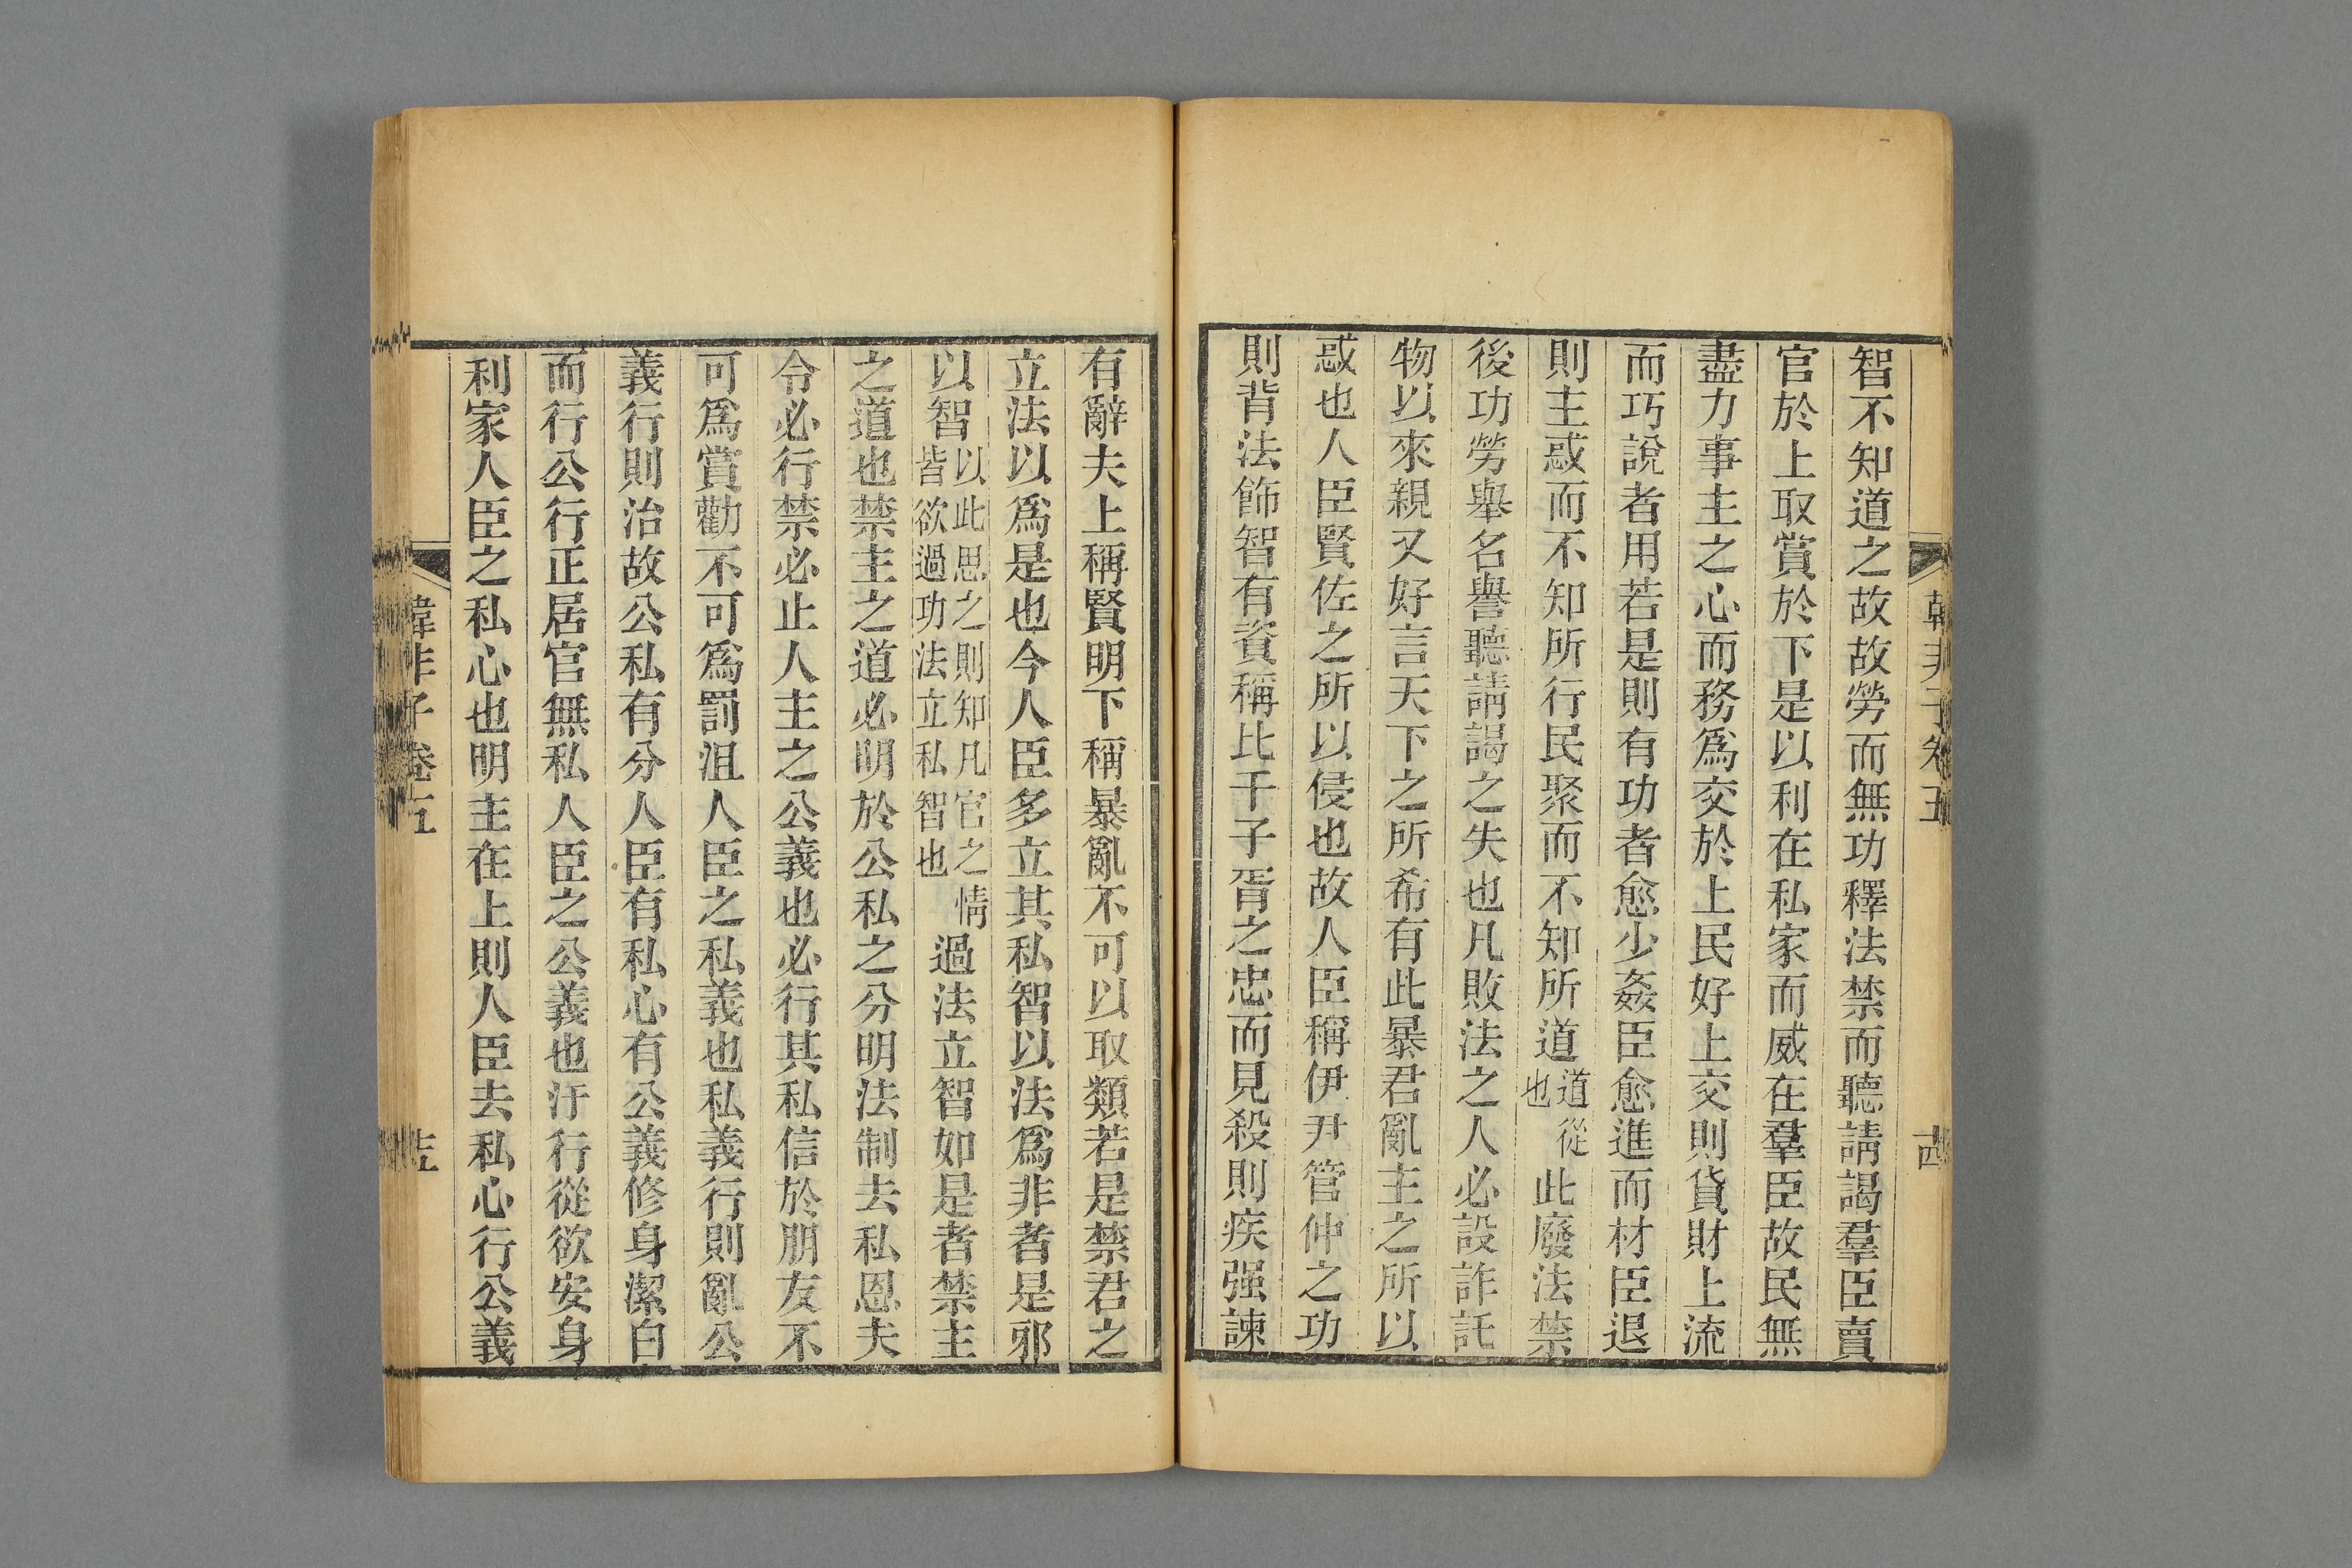 智不知道之故故勞而無功釋法禁而聽請謁羣臣賣
官於上取賞於下是以利在私家而威在羣臣故民無
盡力事主之心而務爲交於上民好上交則貨財上流
而巧說者用若是則有功者愈少姦臣愈進而材臣退
則主惑而不知所行民聚而不知所道道從也此廢法禁
後功勞舉名譽聽請謁之失也凡敗法之人必設詐託
物以來親又好言天下之所希有此暴君亂主之所以
惑也人臣賢佐之所以侵也故人臣稱伊尹管仲之功
則背法飾智有資稱比干子胥之忠而見殺則疾强諫
有辭夫上稱賢明下稱暴亂不可以取類若是禁君之
立法以爲是也今人臣多立其私智以法爲非者是邪
以智以此思之則知凡官之情皆欲過功法立私智也過法立智如是者禁主
之道也禁主之道必明於公私之分明法制去私恩夫
令必行禁必止人主之公義也必行其私信於朋友不
可爲賞勸不可爲罰沮人臣之私義也私義行則亂公
義行則治故公私有分人臣有私心有公義修身潔白
而行公行正居官無私人臣之公義也汙行從欲安身
利家人臣之私心也明主在上則人臣去私心行公義
韓非子卷五